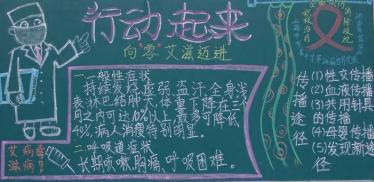 行动起来
向“零”艾滋迈进
一、一般性症状
持续发烧、虚弱、盗汗、全身浅
表淋巴结肿大,体重下降在三个
月之内可达10%以上,最多可降低
40%,病人消瘦特别明显。
二、呼吸道症状
长期咳嗽、胸痛、呼吸困难。
艾病毒
淋病
传播途径
(1)性交传播
(2)血液传播
(3)共用针具
的传播
(4)母婴传播
(5)发现新途
径